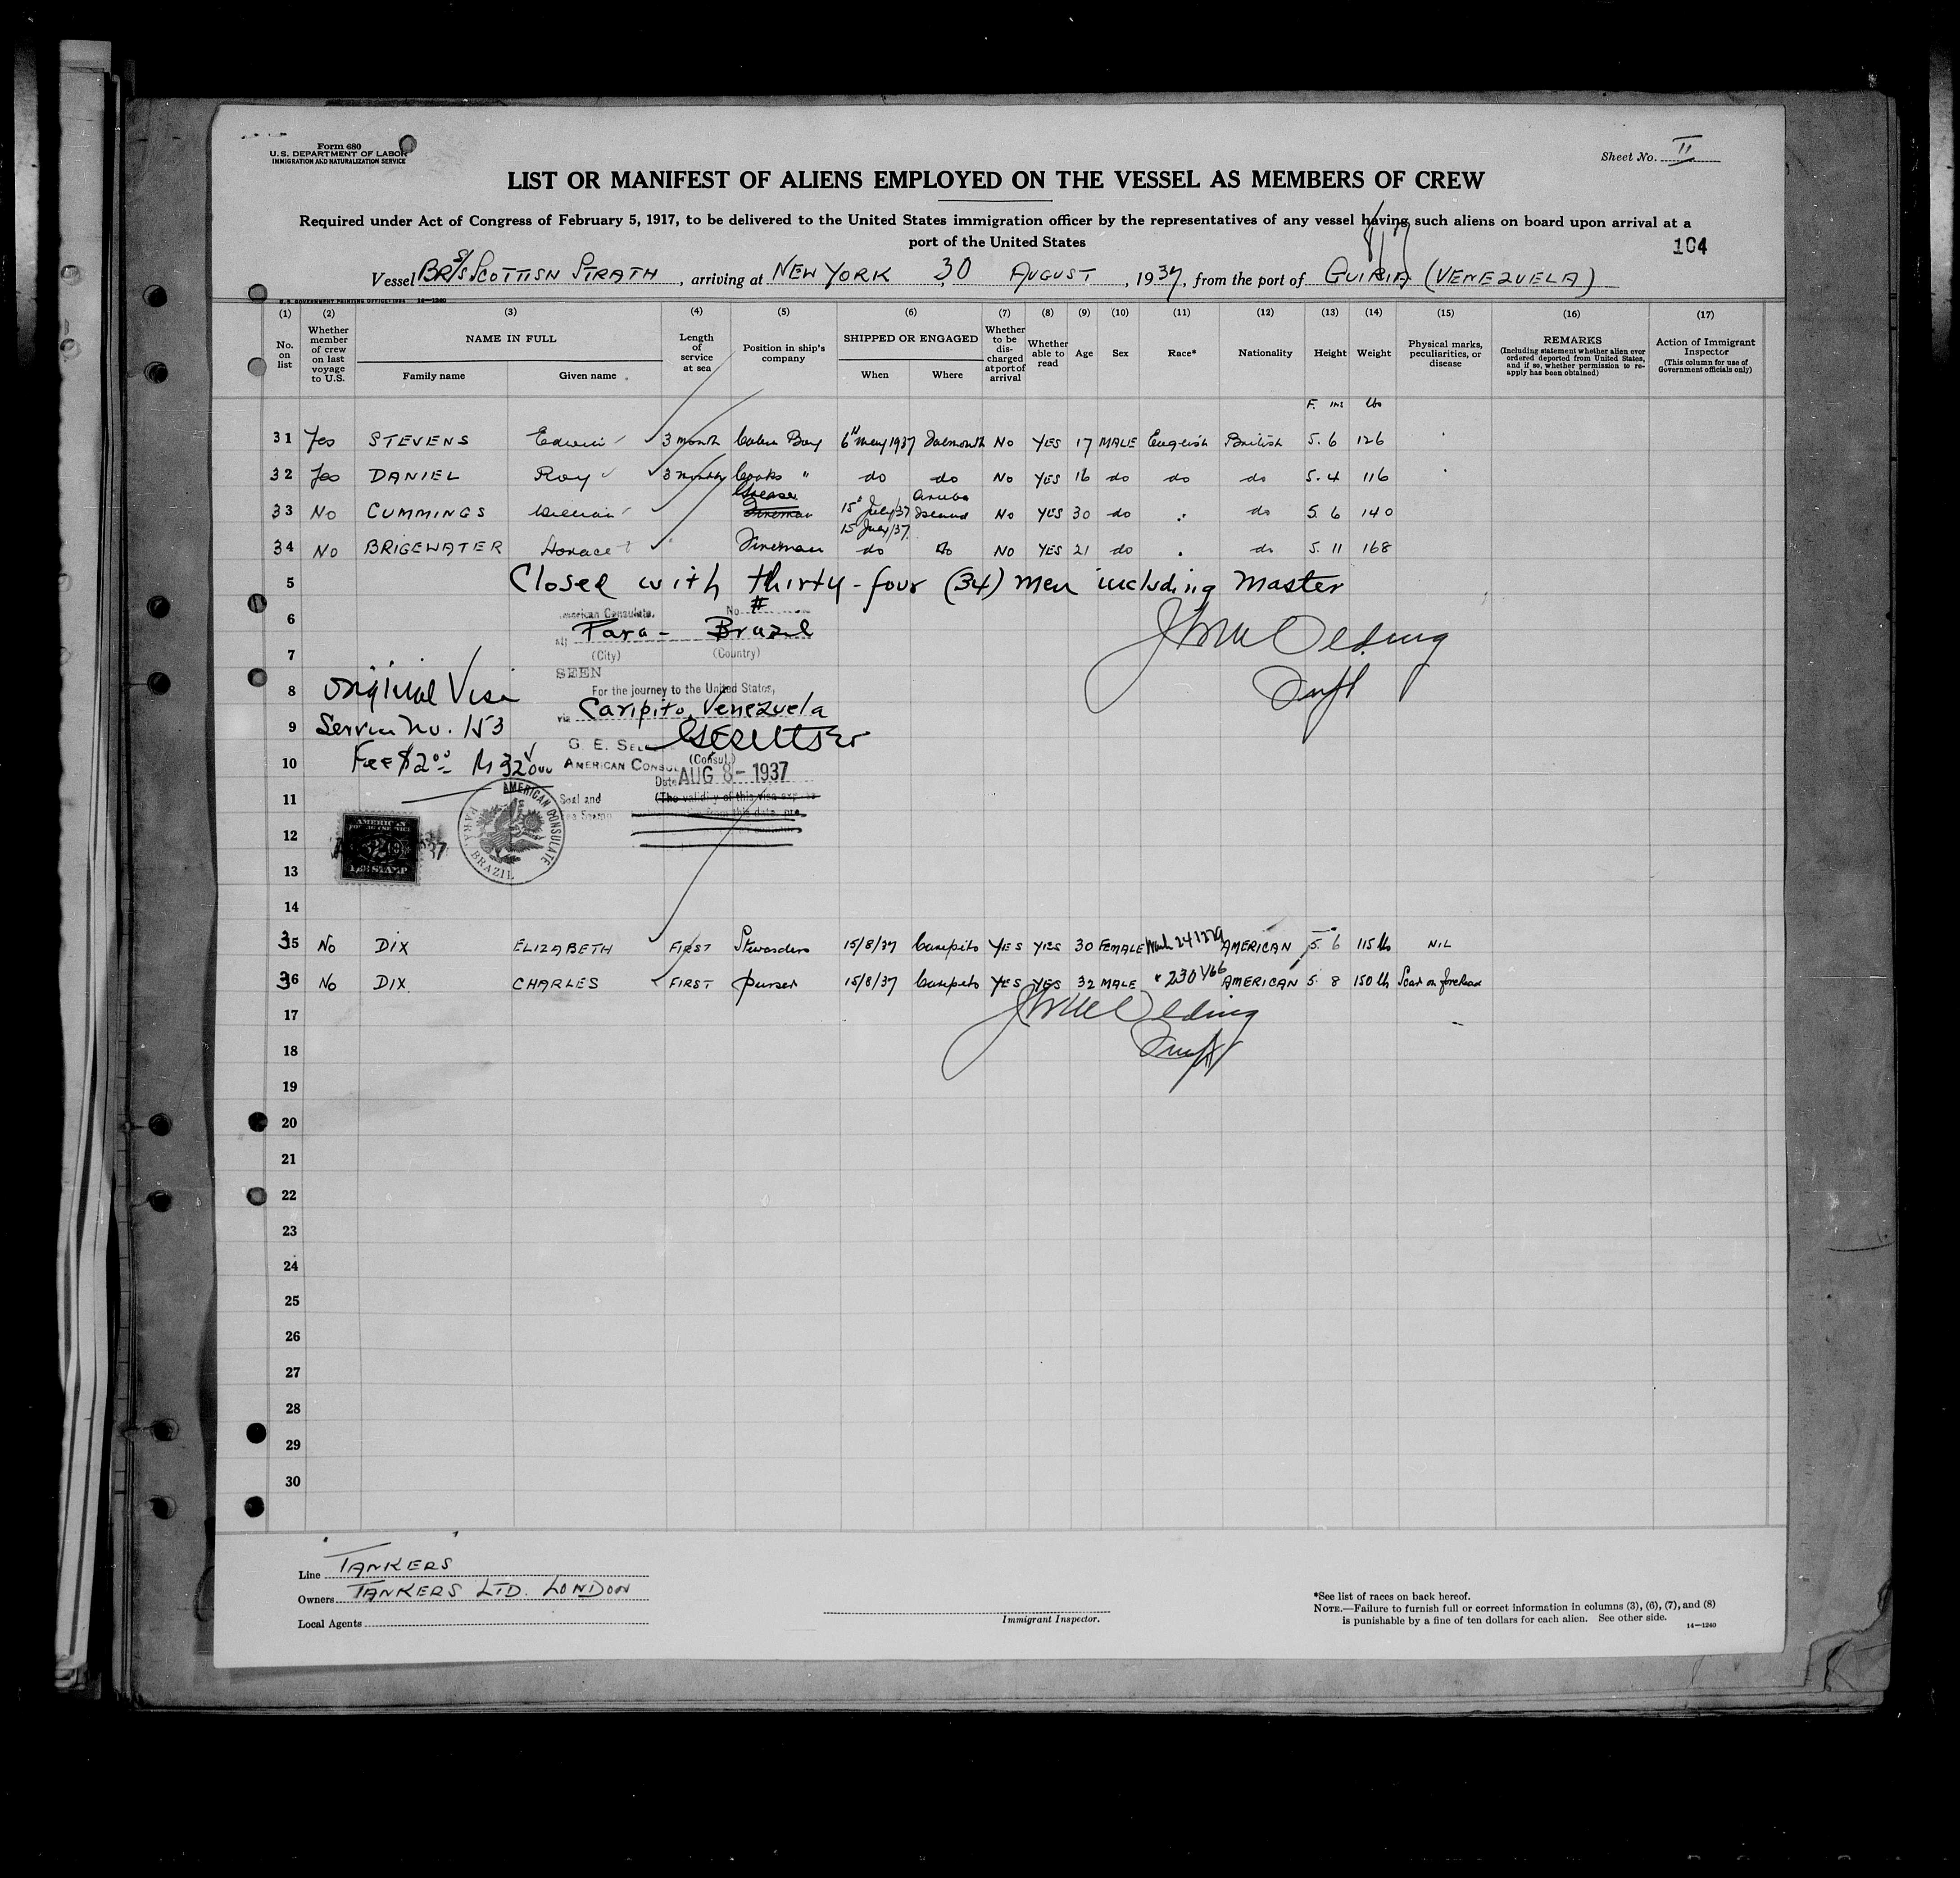 Form 680
U. S. DEPARTMENT OF LABOR
IMMIGRATION AND NATURALIZATION SERVICE
Sheet No. II
LIST OR MANIFEST OF ALIENS EMPLOYED ON THE VESSEL AS MEMBERS OF CREW
Required under Act of Congress of February 5, 1917, to be delivered to the United States immigration officer by the representatives of any vessel having such aliens on board upon arrival at a
port of the United States
104
Vessel BR S/S SCOTTISH STRATH, arriving at NEW YORK 30 AUGUST, 1937, from the port of GUIRIA (VENEZUELA)
U. S. GOVERNMENT PRINTING OFFICE 14—1240
(1) (2) (3) (4) (5) (6) (7) (8) (9) (10) (11) (12) (13) (14) (15) (16) (17)
No. on list
Whether member of crew on last voyage to U.S.
NAME IN FULL
Family name Given name
Length of service at sea
Position in ship's company
SHIPPED OR ENGAGED
When Where
Whether to be discharged at port of arrival
Whether able to read
Age Sex Race* Nationality Height Weight
Physical marks, peculiarities, or disease
REMARKS
(Including statement whether alien ever ordered deported from United States, and if so, whether permission to reapply has been obtained)
Action of Immigrant Inspector
(This column for use of Government officials only)
F. ins lbs
31 Yes STEVENS Edwin 3 month Cabin Boy 6th May 1937 Falmouth No YES 17 MALE English British 5. 6 126
32 Yes DANIEL Roy 3 months Cooks " do do No YES 16 do do do 5. 4 116
Greaser Aruba
33 No CUMMINGS William Fireman 15th July/37 Island No YES 30 do do 5. 6 140
15 July/37
34 No BRIGEWATER Horace Fireman do do No YES 21 do do 5. 11 168
5 Closed with thirty-four (34) men including Master
American Consulate, No #
6
at Para - Brazil
7 (City) (Country)
SEEN
8 original Visa For the journey to the United States,
via Caripito, Venezuela
9 Service No. 153
G. E.
10 Fee $2.00 AMERICAN CONSUL (Consul)
Date AUG 8 - 1937
11 Seal and (The validity of this visa
from this date,
12
AMERICAN CONSULATE PARA, BRAZIL
AMERICAN
FEE STAMP
13
14
35 No DIX ELIZABETH FIRST Stewardess 15/8/37 Caripito YES YES 30 FEMALE AMERICAN 5. 6 115 lb NIL
36 No DIX CHARLES FIRST purser 15/8/37 Caripito YES YES 32 MALE AMERICAN 5. 8 150 lb Scar on forehead
17
18
19
20
21
22
23
24
25
26
27
28
29
30
Line TANKERS
Owners TANKERS LTD. LONDON
Local Agents
Immigrant Inspector.
*See list of races on back hereof.
NOTE.—Failure to furnish full or correct information in columns (3), (6), (7), and (8)
is punishable by a fine of ten dollars for each alien. See other side.
14—1240